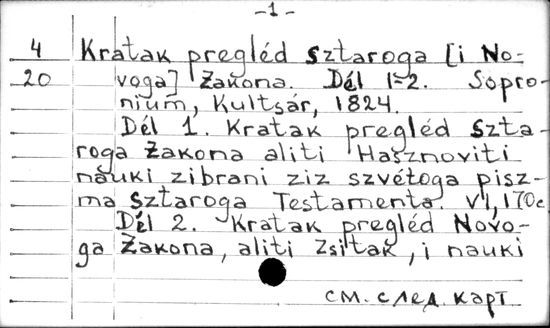 -1-
4 Kratak pregléd sztaroga [i No-
20 voga] Zakona. Dél 1-2. Sopro-
nium, Kultsár, 1824.
Dél 1. Kratak pregléd szta-
roga Zakona aliti Hasznoviti
nauki zibrani ziz szvétoga pisz-
ma sztaroga Testamenta. VI, 170c
Dél 2. Kratak pregléd Novo-
ga Zakona, aliti Zsitak, i nauki
см. след. карт